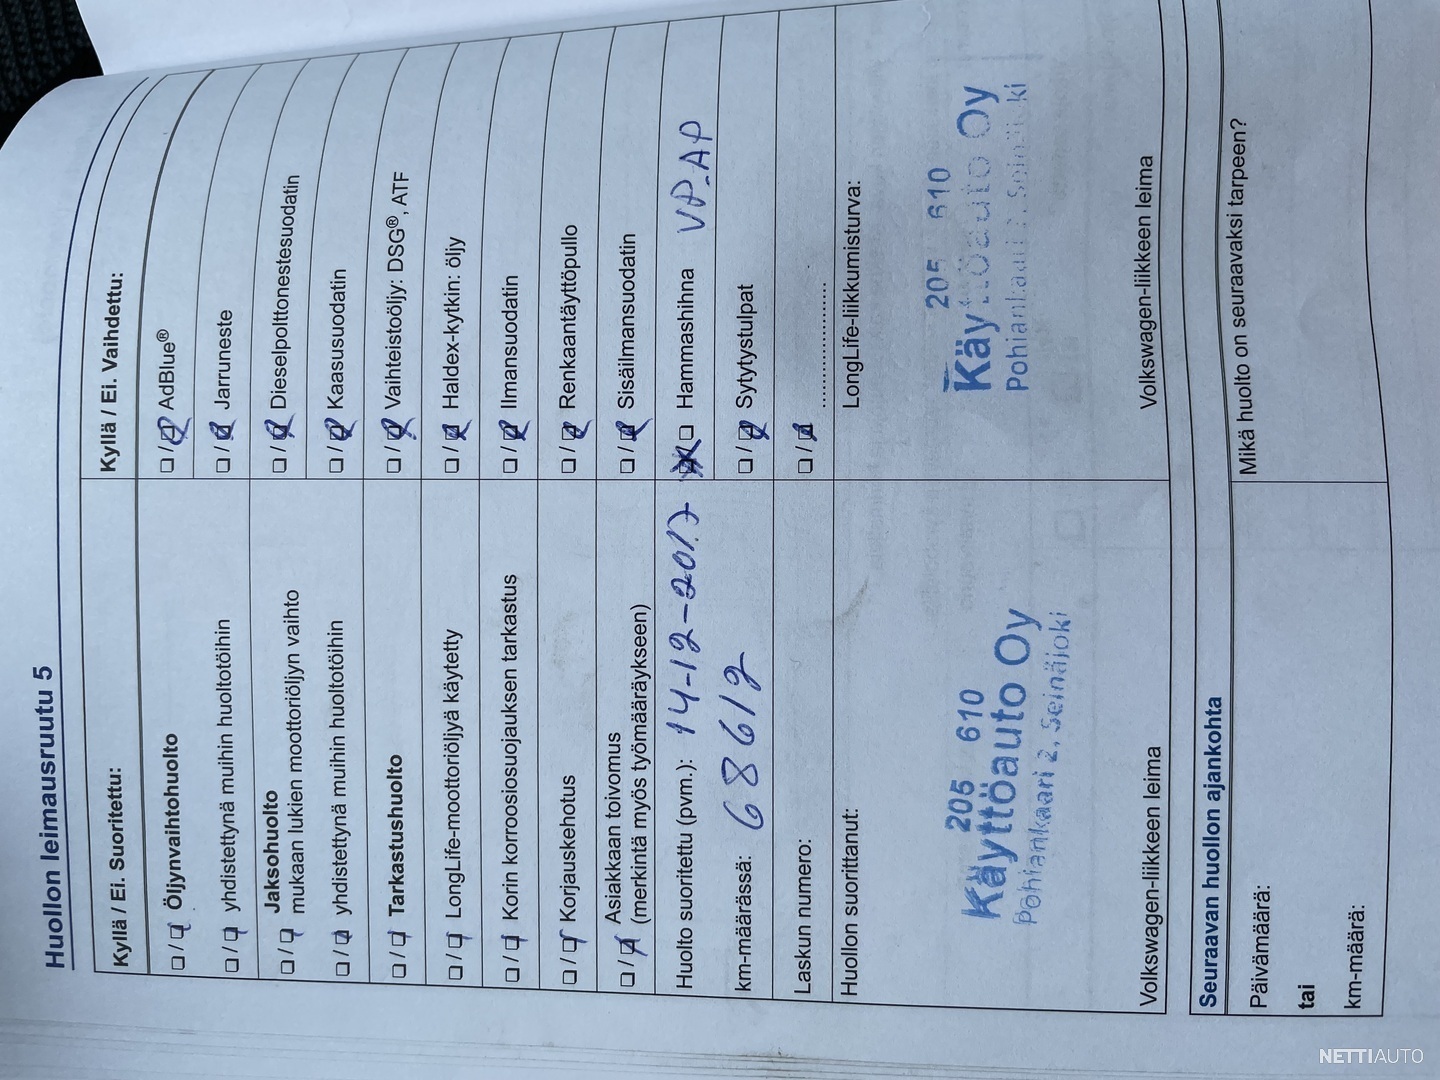 Huollon leimausruutu 5
Kyllä / Ei. Suoritettu:
Öljynvaihtohuolto
yhdistettynä muihin huoltotöihin
Jaksohuolto
mukaan lukien moottoriöljyn vaihto
yhdistettynä muihin huoltotöihin
Tarkastushuolto
LongLife-moottoriöljyä käytetty
Korin korroosiosuojauksen tarkastus
Korjauskehotus
Asiakkaan toivomus
(merkintä myös työmääräykseen)
Huolto suoritettu (pvm.): 14-12-2017
km-määrässä: 68612
Laskun numero:
Huollon suorittanut:
205 610
Käyttöauto Oy
Pohjankaari 2, Seinäjoki
Volkswagen-liikkeen leima
Kyllä / Ei. Vaihdettu:
AdBlue®
Jarruneste
Dieselpolttonestesuodatin
Kaasusuodatin
Vaihteistoöljy: DSG®, ATF
Haldex-kytkin: öljy
Ilmansuodatin
Renkaantäyttöpullo
Sisäilmansuodatin
Hammashihna VP-AP
Sytytystulpat
LongLife-liikkumisturva:
205 610
Käyttöauto Oy
Pohjankaari 2, Seinäjoki
Volkswagen-liikkeen leima
Seuraavan huollon ajankohta
Päivämäärä:
tai
km-määrä:
Mikä huolto on seuraavaksi tarpeen?
NETTIAUTO